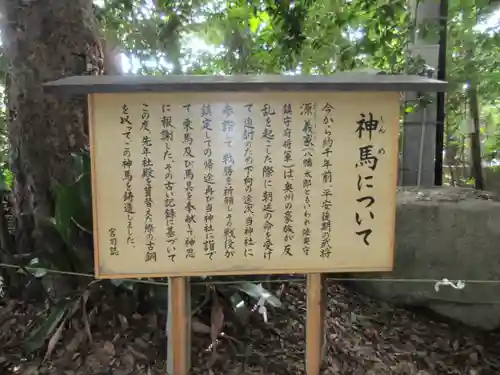 神馬について
しんめ
今から約千年前、平安後期の武将
源義家(八幡太郎ともいわれ陸奥守
鎮守府将軍)は奥州の豪族が反
乱を起こした際に朝廷の命を受け
て追討のため下向の途次、当神社に
参詣して戦勝を祈願しその戦役が
鎮定しての帰途再び当神社に詣で
て乗馬及び馬具を奉献して神恩
に報謝した。その古い記録に基づいて
この度、先年社殿を葺替えた際の古銅
を以って、この神馬を鋳造しました。
宮司誌